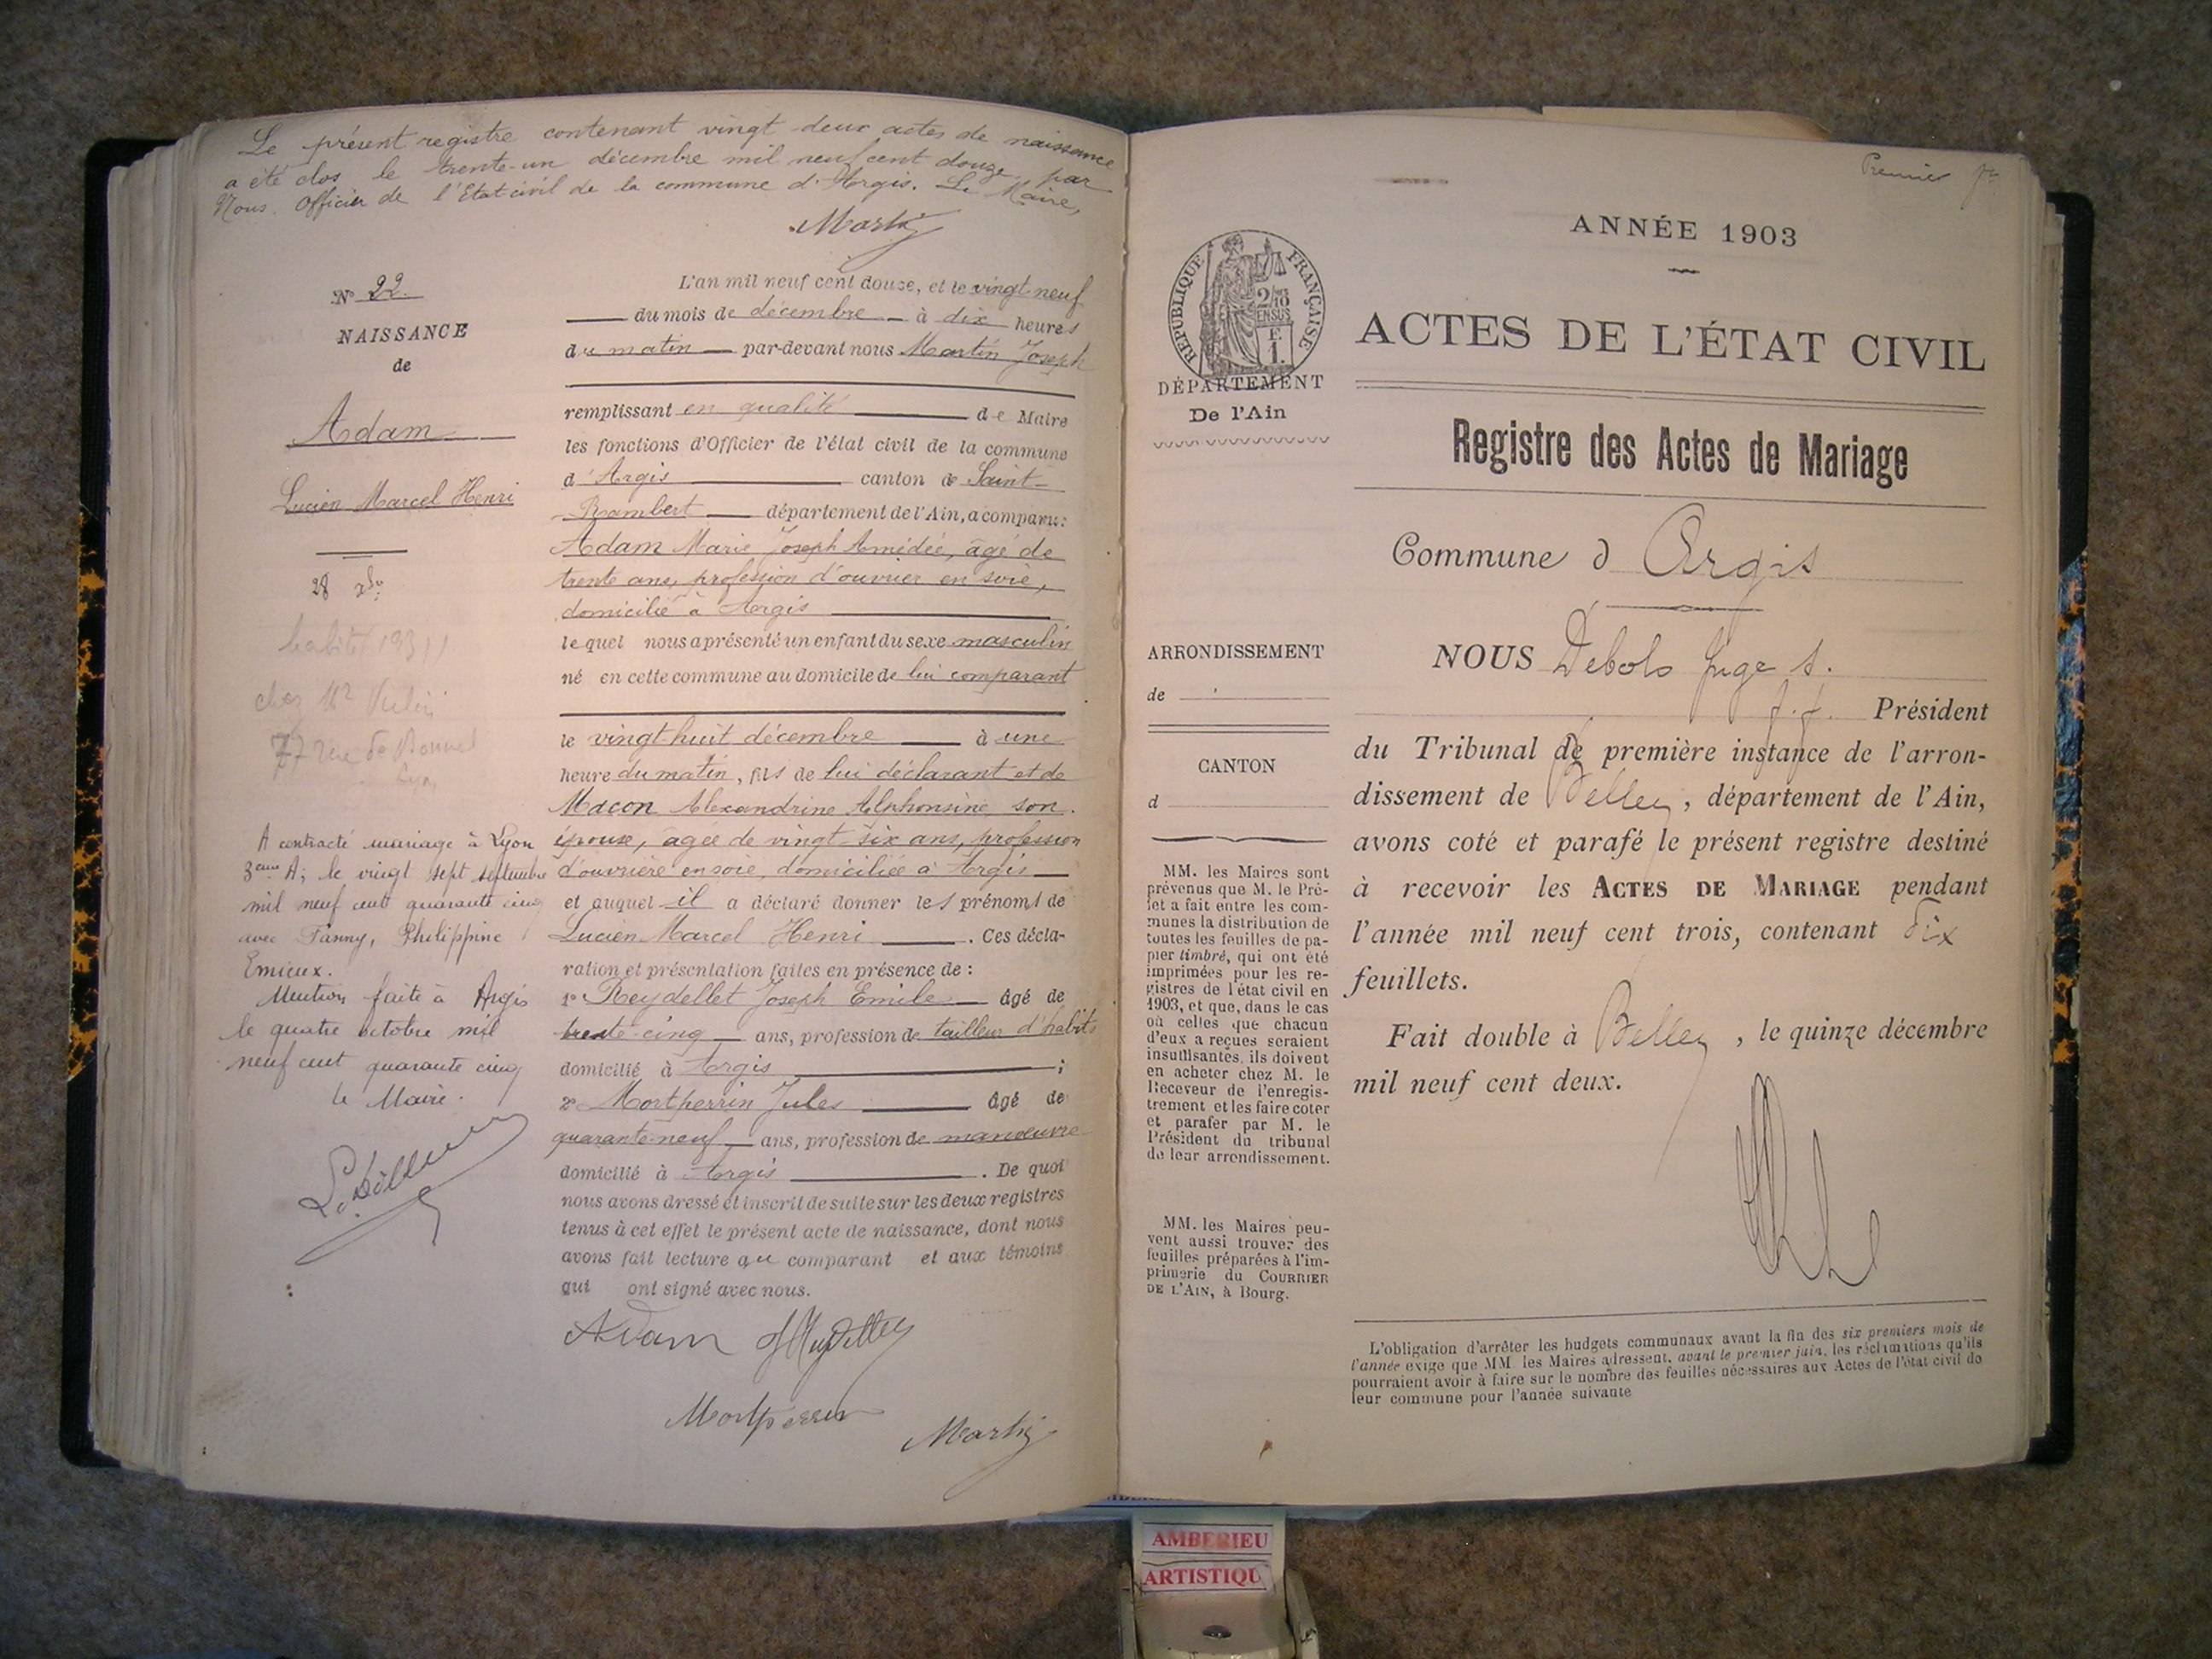 Le présent registre contenant vingt deux actes de naissance
a été clos le trente-un décembre mil neuf cent douze par
Nous. Officier de l'Etat-civil de la commune d'Argis. Le Maire,
Martin
N° 22.
NAISSANCE
de
Adam
Lucien Marcel Henri
28 xbr
habite
chez Mr
77 rue de Bonnel
Lyon
A contracté mariage à Lyon
3eme A; le vingt sept septembre
mil neuf cent quarante cinq
avec Fanny, Philippine
Emieux.
Mention faite à Argis
le quatre octobre mil
neuf cent quarante cinq
le Maire.
L'an mil neuf cent douze, et le vingt-neuf
du mois de décembre à dix heures
du matin par-devant nous Martin Joseph
remplissant en qualité de Maire
les fonctions d'Officier de l'état civil de la commune
d'Argis canton de Saint-
Rambert département de l'Ain, a comparu:
Adam Marie Joseph Amédée, âgé de
trente ans, profession d'ouvrier en soie,
domicilié à Argis
lequel nous a présenté un enfant du sexe masculin
né en cette commune au domicile de lui comparant
le vingt-huit décembre à une
heure du matin, fils de lui déclarant et de
Macon Alexandrine Alphonsine son
épouse, âgée de vingt-six ans, profession
d'ouvrière en soie, domiciliée à Argis
et auquel il a déclaré donner les prénoms de
Lucien Marcel Henri. Ces décla-
ration et présentation faites en présence de :
1° Reydellet Joseph Emile âgé de
trente-cinq ans, profession de tailleur d'habits
domicilié à Argis ;
2° Montperrin Jules âgé de
quarante-neuf ans, profession de manoeuvre
domicilié à Argis. De quoi
nous avons dressé et inscrit de suite sur les deux registres
tenus à cet effet le présent acte de naissance, dont nous
avons fait lecture au comparant et aux témoins
qui ont signé avec nous.
Adam JReydellet
Montperrin
Martin
Premier
ANNÉE 1903
RÉPUBLIQUE FRANÇAISE
2/10
EN SUS
F.
1.
DÉPARTEMENT
De l'Ain
ACTES DE L'ÉTAT CIVIL
Registre des Actes de Mariage
Commune d Argis
ARRONDISSEMENT
de
CANTON
d
MM. les Maires sont
prévenus que M. le Pré-
fet a fait entre les com-
munes la distribution de
toutes les feuilles de pa-
pier timbré, qui ont été
imprimées pour les re-
gistres de l'état civil en
1903, et que, dans le cas
où celles que chacun
d'eux a reçues seraient
insuffisantes, ils doivent
en acheter chez M. le
Receveur de l'enregis-
trement et les faire coter
et parafer par M. le
Président du tribunal
de leur arrondissement.
MM. les Maires peu-
vent aussi trouver des
feuilles préparées à l'im-
primerie du COURRIER
DE L'AIN, à Bourg.
NOUS Debolo juge s.
f.f. Président
du Tribunal de première instance de l'arron-
dissement de Belley, département de l'Ain,
avons coté et parafé le présent registre destiné
à recevoir les ACTES DE MARIAGE pendant
l'année mil neuf cent trois, contenant dix
feuillets.
Fait double à Belley, le quinze décembre
mil neuf cent deux.
L'obligation d'arrêter les budgets communaux avant la fin des six premiers mois de
l'année exige que MM. les Maires adressent, avant le premier juin, les réclamations qu'ils
pourraient avoir à faire sur le nombre des feuilles nécessaires aux Actes de l'état civil de
leur commune pour l'année suivante
AMBERIEU
ARTISTIQU